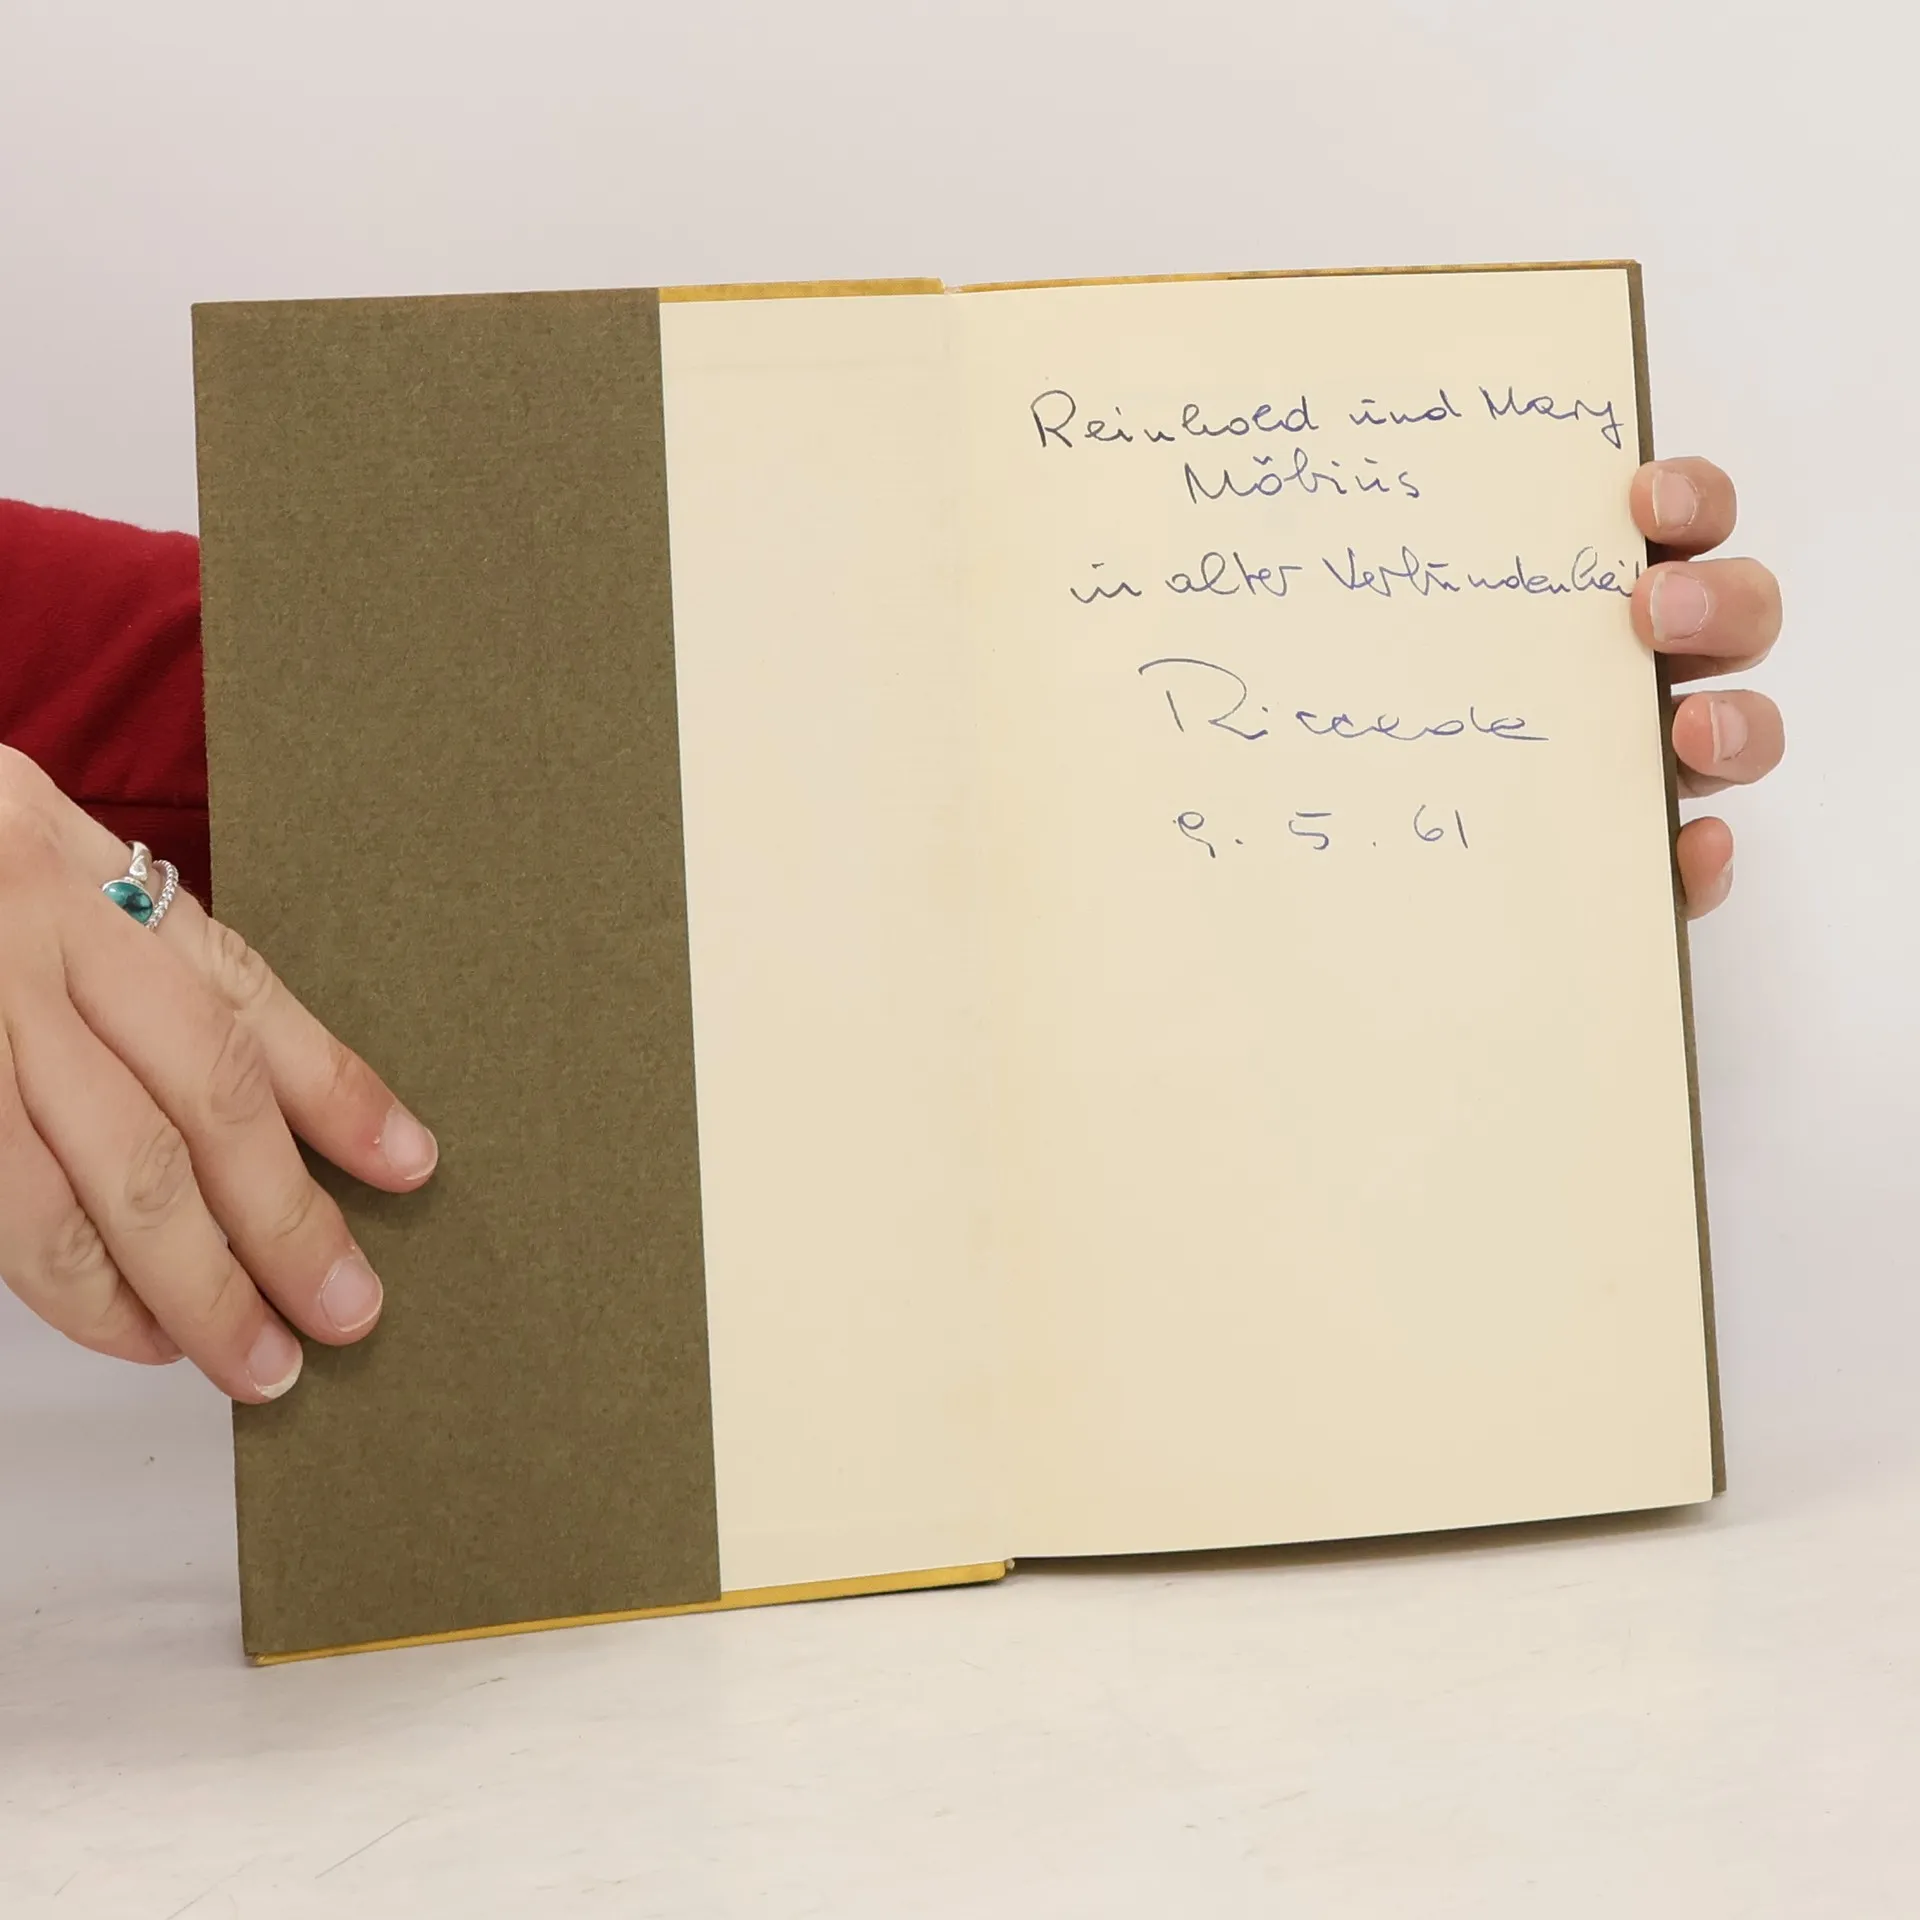 Reinhold und Mary
Möbius
in alter Verbundenheit
9. 5. 61